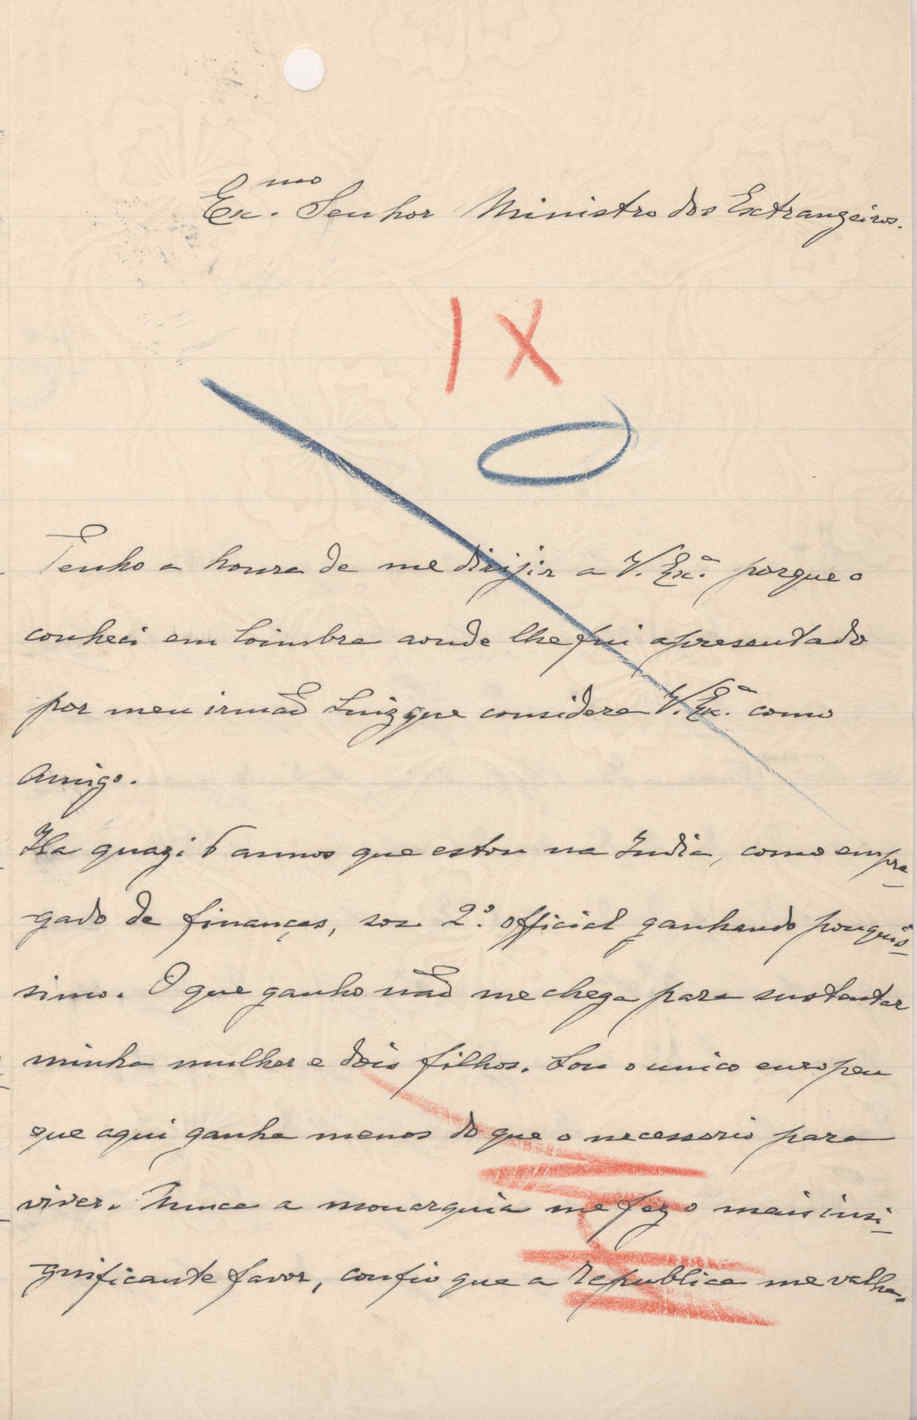 Ex.mo Senhor Ministro dos Extrangeiros.
IX
Tenho a honra de me dirijir a V. Exª. porque o
conheci em Coimbra aonde lhe fui apresentado
por meu irmão Luiz que considera V. Exª. como
Amigo.
Ha quazi 6 annos que estou na India, como empre-
gado de finanças, sou 2.º official ganhando pouquis-
simo. O que ganho não me chega para sustentar
minha mulher e dois filhos. Sou o unico europeu
que aqui ganha menos do que o necessario para
viver. Nunca a monarquia me fez o mais insi-
gnificante favor, confio que a republica me valha.